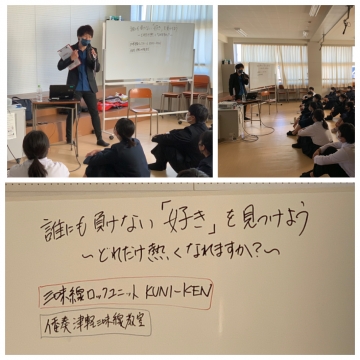 誰にも負けない「好き」を見つけよう
～どれだけ熱くなれますか?～
三味線ロックユニット KUNI-KEN
津軽三味線教室